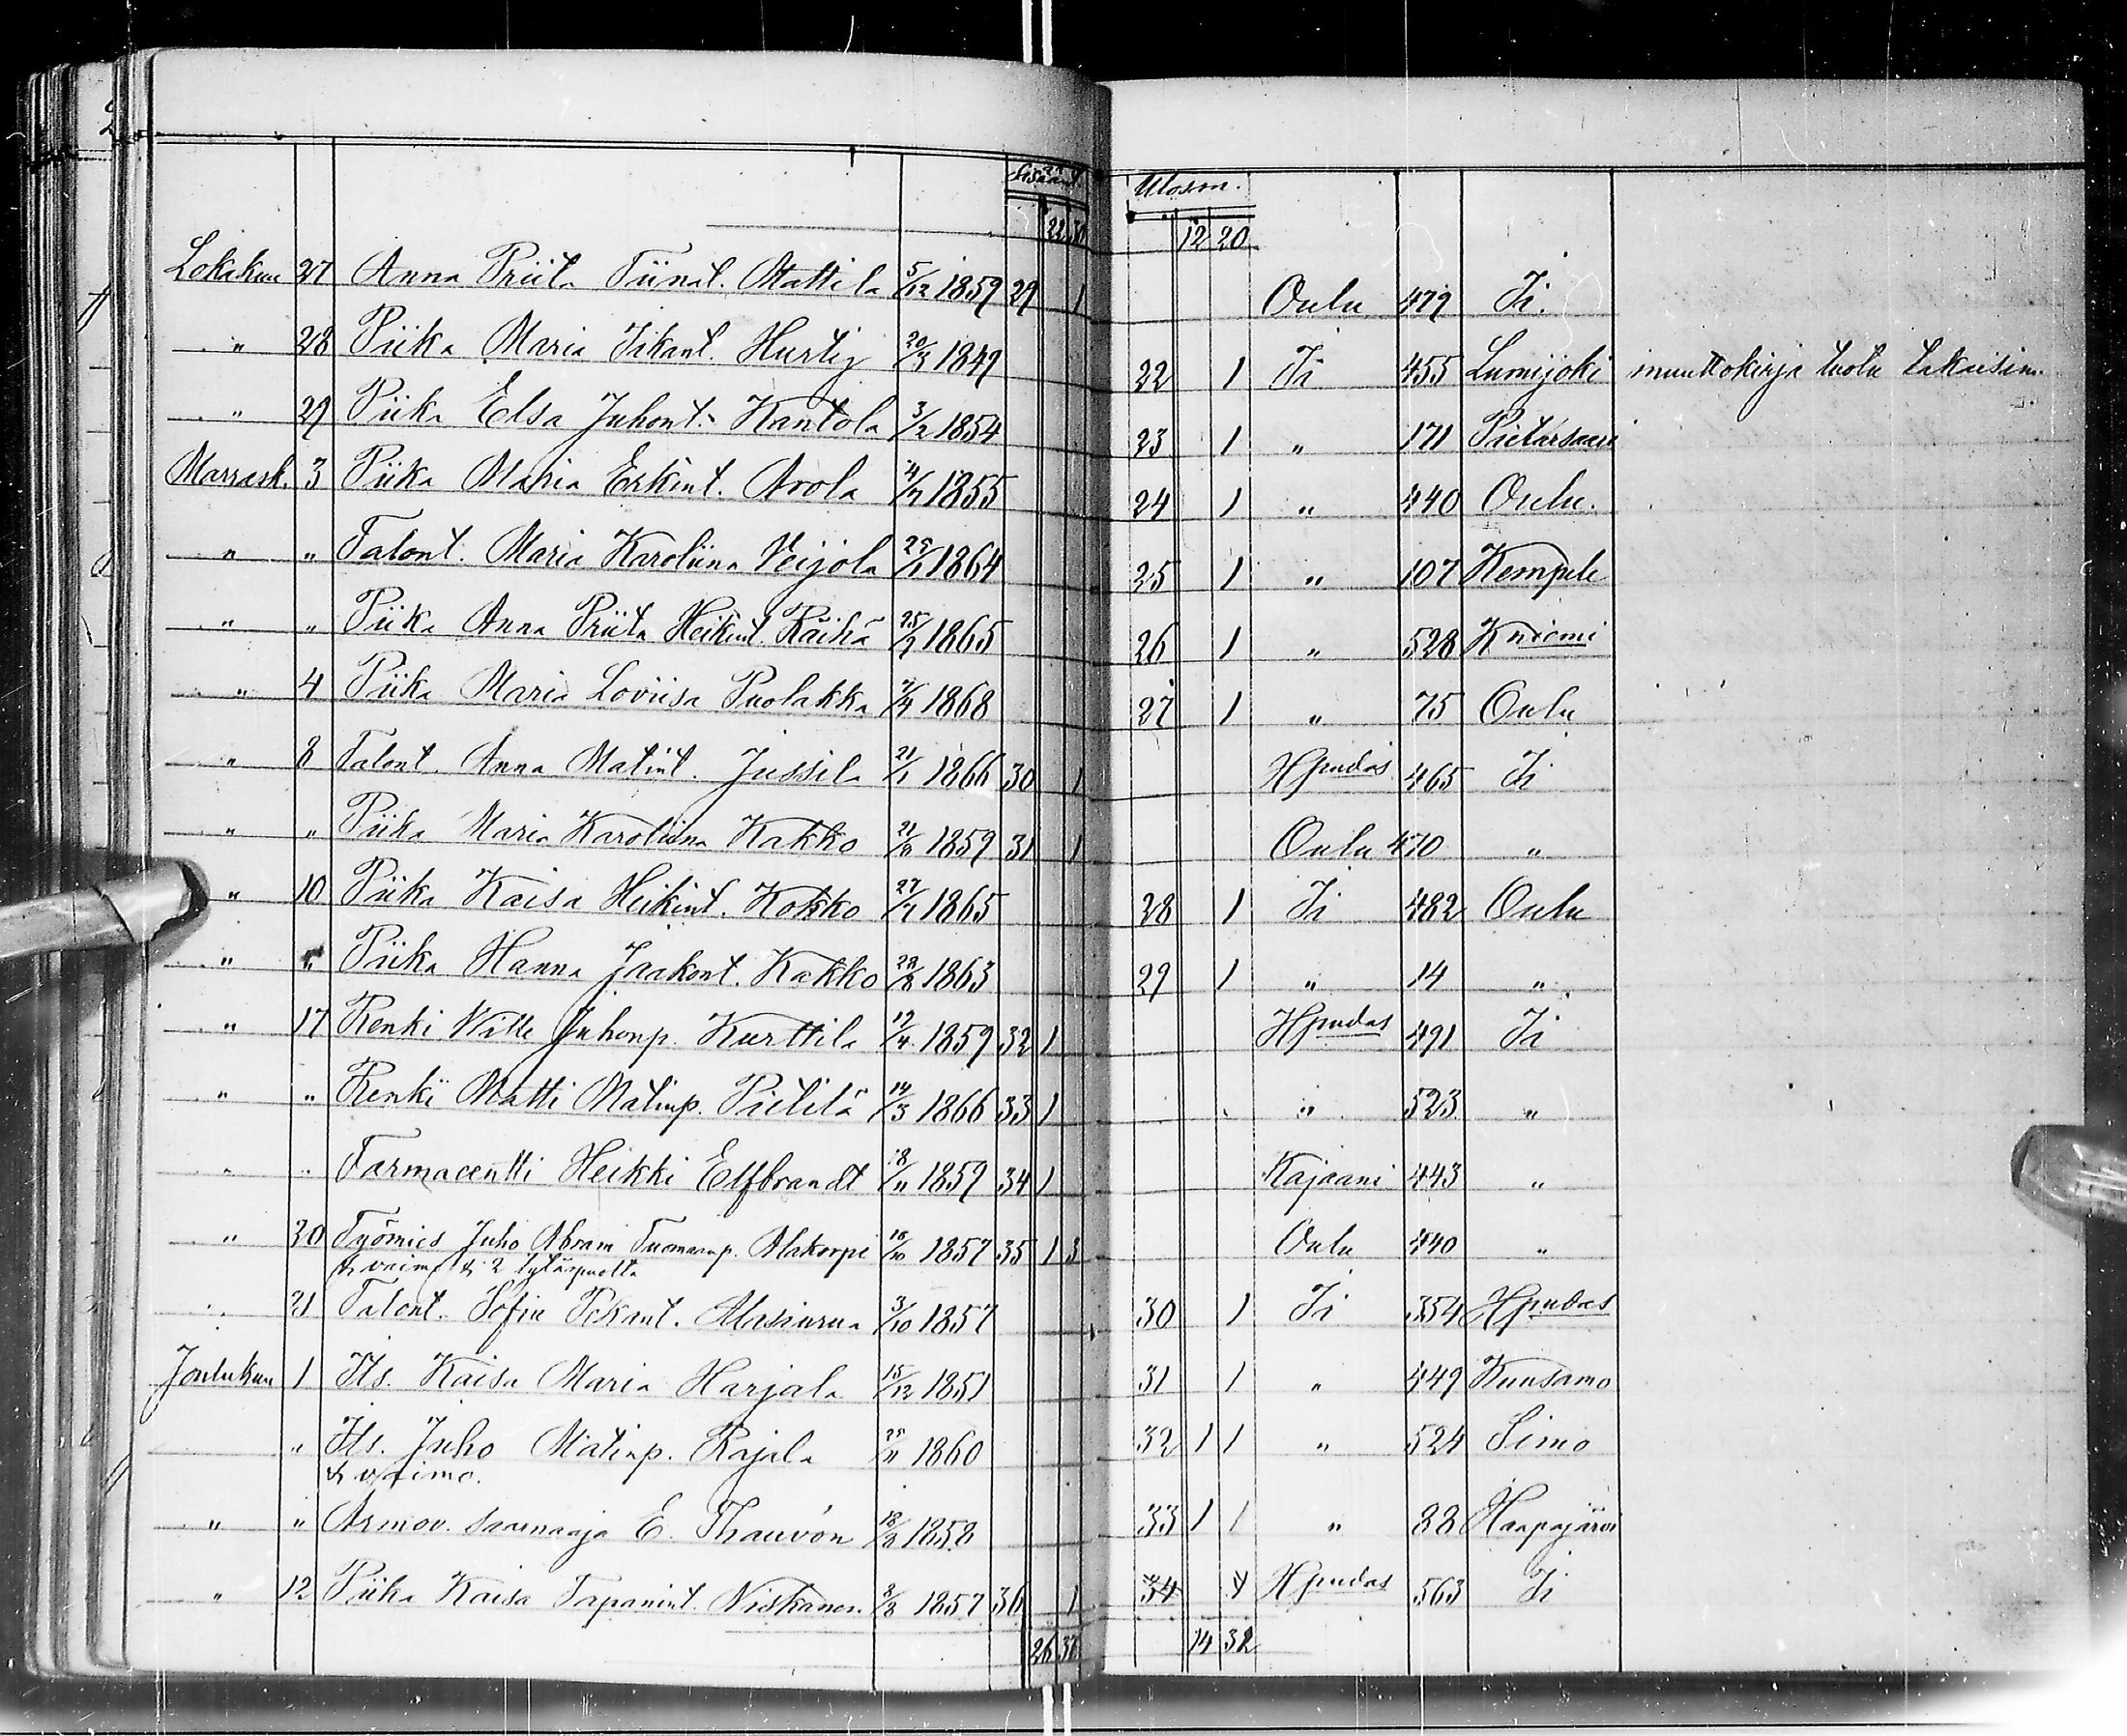 Sisäänt. Ulosm.
22 30 12 20
Lokakuu 27 Anna Priita Tiinat. Mattila 5/12 1859 29 1 Oulu 479 Ii.
" 28 Piika Maria Iikant. Hurtig 20/3 1849 22 1 Ii 455 Lumijoki muuttokirja tuotu takaisin.
" 29 Piika Elsa Juhont. Kantola 3/2 1854 23 1 " 171 Pietarsaari
Marrask. 3 Piika Maria Erkint. Arola 4/7 1855 24 1 " 440 Oulu.
" " Talont. Maria Karoliina Veijola 1864 25 1 " 107 Kempele
" " Piika Anna Priita Heikint. Räihä 1865 26 1 " 528 Kniemi
" 4 Piika Maria Loviisa Puolakka 1868 27 1 " 75 Oulu
" 8 Talont. Anna Matint. Jussila 21/1 1866 30 1 Hpudas 465 Ii
" " Piika Maria Karoliina Kakko 21/8 1859 31 1 Oulu 470 "
" 10 Piika Kaisa Heikint. Kokko 1865 28 1 Ii 482 Oulu
" " Piika Hanna Jaakont. Kakko 28/8 1863 29 1 " 14 "
" 17 Renki Wille Juhonp. Kurttila 19/4 1859 32 1 Hpudas 491 Ii
" " Renki Matti Matinp. Pietilä 14/3 1866 33 1 " 523 "
" " Farmaceutti Heikki Elfbrandt 18/11 1859 34 1 Kajaani 443 "
" 20 Työmies Juho Abram Tuomaanp. Alakorpi 16/10 1857 35 1 3 Oulu 440 "
& vaimo & 2 tytärpuolta
" 21 Talont. Sofia Pekant. Alasiurua 3/10 1857 30 1 Ii 354 Hpudas
Joulukuu 1 Its. Kaisa Maria Harjala 15/12 1851 31 1 " 449 Kuusamo
" Its. Juho Matinp. Rajala 1860 32 1 1 " 524 Simo
& vaimo.
" " Armov. saarnaaja E. Thauvón 18/8 1858 33 1 1 " 88 Haapajärvi
" 12 Piika Kaisa Tapanint. Niskanen 3/8 1857 36 1 34 1 Hpudas 563 Ii
26 37 14 32